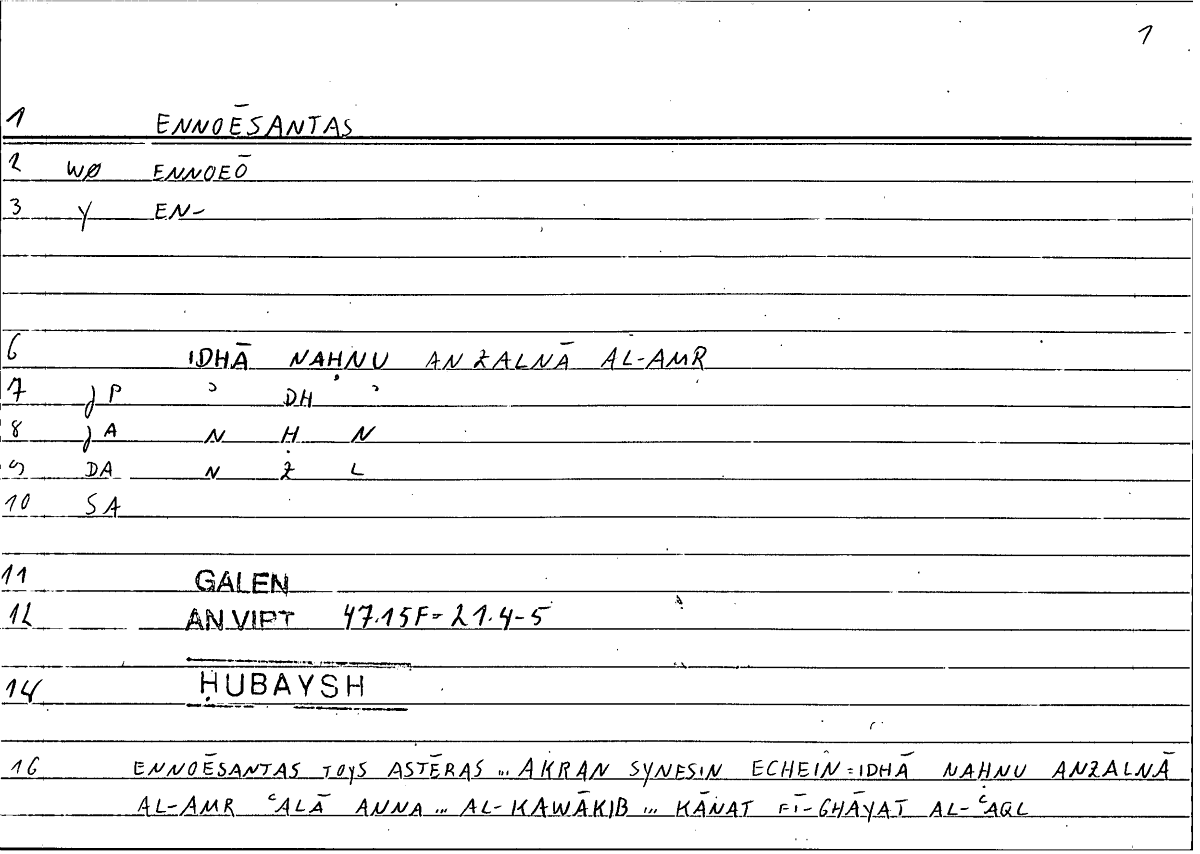 1
1 ENNOĒSANTAS
2 WØ ENNOEŌ
3 Y EN-
6 IDHĀ NAḤNU ANZALNĀ AL-AMR
7 JP ʾ DH ʾ
8 JA N Ḥ N
9 DA N Z L
10 SA
11 GALEN
12 AN VIRT 47.15F=21.4-5
14 ḤUBAYSH
16 ENNOĒSANTAS TOYS ASTĒRAS ... AKRAN SYNESIN ECHEIN = IDHĀ NAHNU ANZALNĀ
AL-AMR ʿALĀ ANNA ... AL-KAWĀKIB ... KĀNAT FĪ-GHĀYAT AL-ʿAQL